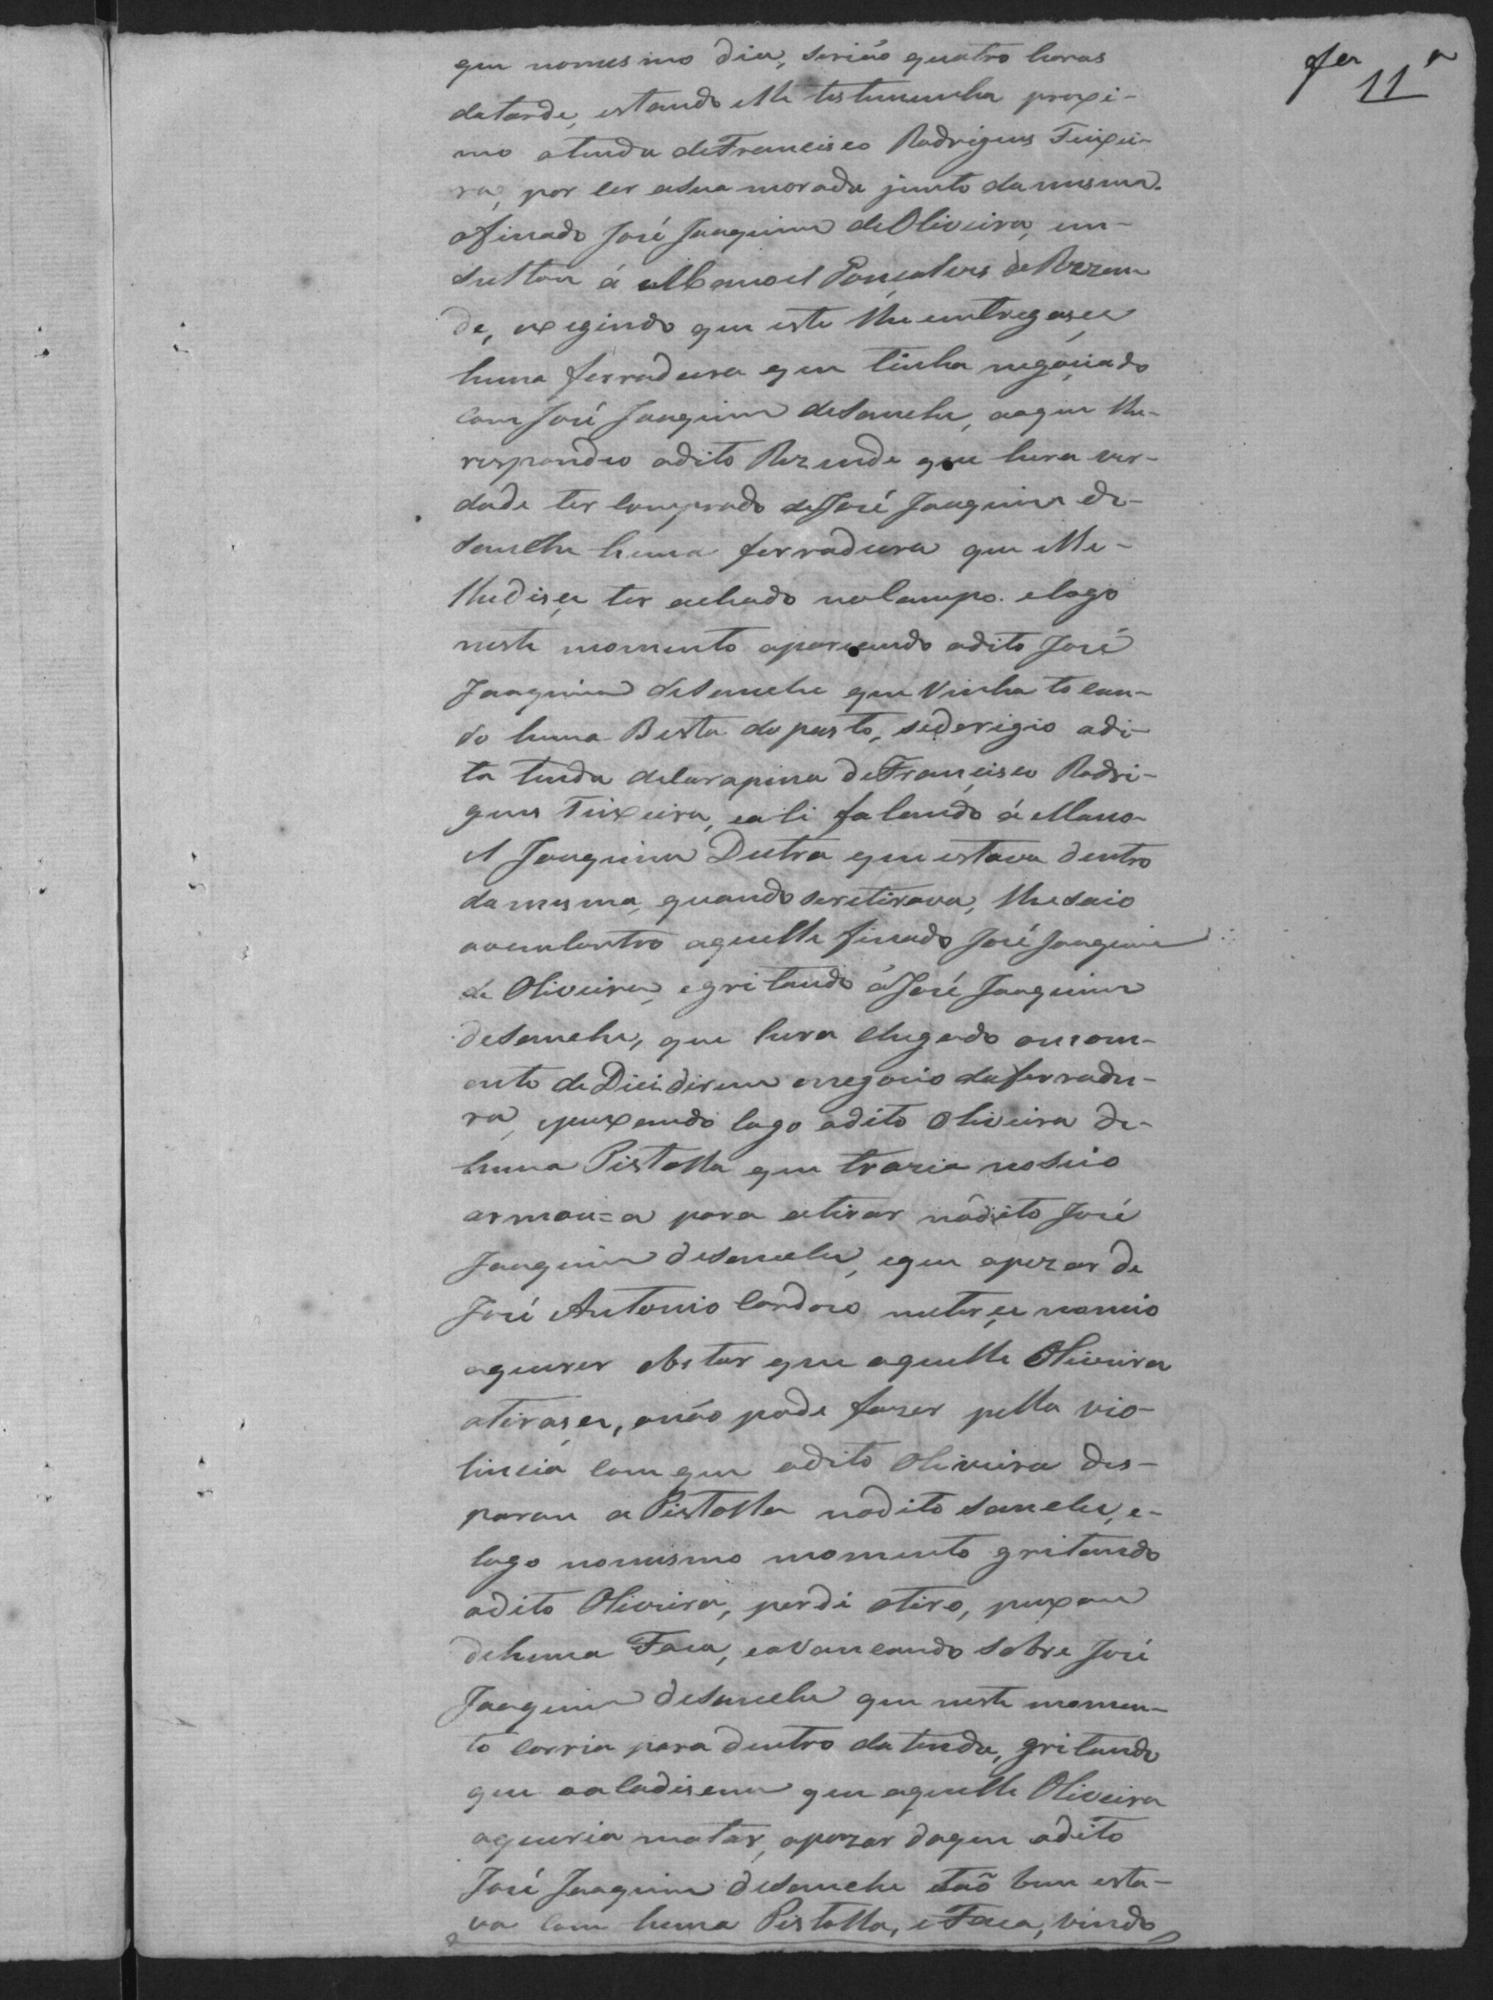 11
que nomesmo dia, serião quatro horas
datarde, estando elle testemunha proxi-
mo atenda deFrancisco Rodrigues Teixei-
ra, por ser asua morada junto damesma.
ofinado José Joaquim deOliveira, in-
sultou á Manoel Gonçalves deRezen
de, exegindo que este lhe entregasse
huma ferradura que tinha negociado
com José Joaquim deSanche, aoque lhe-
respondeo odito Rezende que hera ver-
dade ter comprado deJosé Joaquim de-
Sanche huma ferradura que elle-
lhedise ter achado nocampo. elogo
neste momento aparecendo odito José
Joaquim deSanche que vinha tocan-
do huma Besta do pasto, sederigio adi-
ta tenda deCarapina deFrancisco Rodri-
gues Teixeira, eali falando á Mano-
el Joaquim Dutra que estava dentro
damesma, quando seretirava, lhesaio
aoencontro aquelle finado José Joaquim
de Oliveira, egritando áJosé Joaquim
deSanche, que hera chegado omom-
ento deDicidirem onegocio daferradu-
ra, epuxando logo odito Oliveira de-
huma Pistolla que trazia noseio
armou=a para atirar nodito José
Joaquim deSanche, eque apezar de
José Antonio Cardozo meterse nomeio
aquerer obstar que aquelle Oliveira
atirase, onão pode fazer pella vio-
lincia com que odito Oliveira des-
parou a Pistolla nodito Sanche, e-
logo nomesmo momento gritando
odito Oliveira, perdi otiro, puxou
dehuma Faca, eavancando sobre José
Joaquim deSanche que neste momen-
to corria para dentro datenda, gritando
que oacudisem que aquelle Oliveira
oqueria matar, apezar daque odito
José Joaquim deSanche taõ bem esta-
va com huma Pistolla, e Faca, vindo